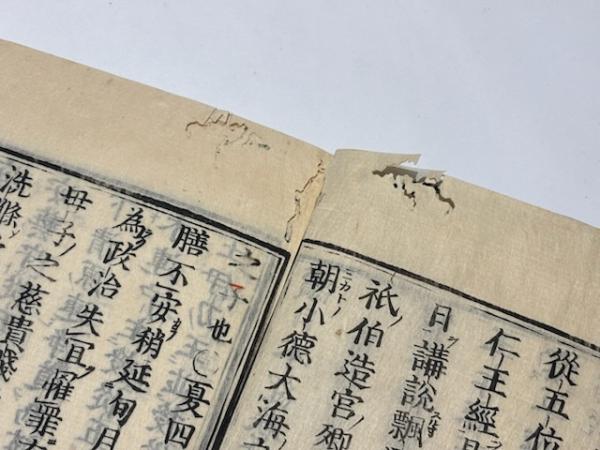 從五位
仁王經
日講說飄
祇伯造宮卿
朝小德大海
之子也○夏四
膳不安稍延旬月
為政治失宜罹罪
母子之慈貴賤
洗滌